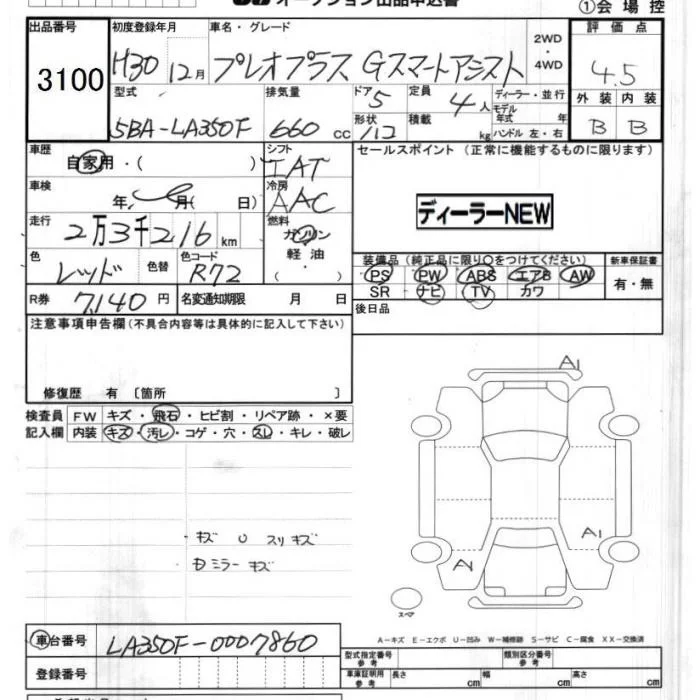 オークション出品申込書 ①会場控
出品番号 初度登録年月 車名・グレード 2WD ・ 4WD 評価点
3100 H30 12月 プレオプラス Gスマートアシスト 4.5
型式 排気量 ドア 定員 ディーラー・並行 外装 内装
5BA-LA350F 660 cc 5 4人 モデル年式 年 B B
形状 積載 kg ハンドル 左・右
車歴 自家用・( ) シフト IAT セールスポイント (正常に機能するものに限ります)
車検 年 月( 日) 冷房 AAC
ディーラーNEW
走行 2万3千216km 燃料 ガソリン
色 レッド 色替 色コード R72 軽油 ・ ( )
装備品(純正品に限り○をつけてください) 新車保証書
PS PW ABS エアB AW 有・無
SR ナビ TV カワ
R券 7,140円 名変通知期限 月 日
後日品
注意事項申告欄(不具合内容等は具体的に記入して下さい)
修復歴 有 〔箇所 〕
検査員 FW キズ・飛石・ヒビ割・リペア跡・×要
記入欄 内装 キズ・汚レ・コゲ・穴・スレ・キレ・破レ
A1
キズ U スリキズ
A1
ミラー キズ
A1
スペア
A-キズ E-エクボ U-凹み W-補修跡 S-サビ C-腐食 XX-交換済
車台番号 LA350F-0007860
型式指定番号 参考 類別区分番号 参考
登録番号
車庫証明用 参考 長さ cm 幅 cm 高さ cm